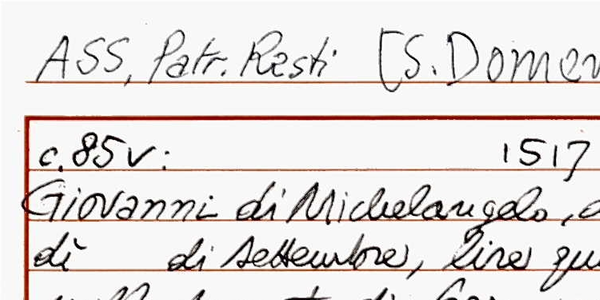 ASS, Patr. Resti [S. Domen
c. 85v: 1517
Giovanni di Michelangelo,
dì di settembre, lire qu
di